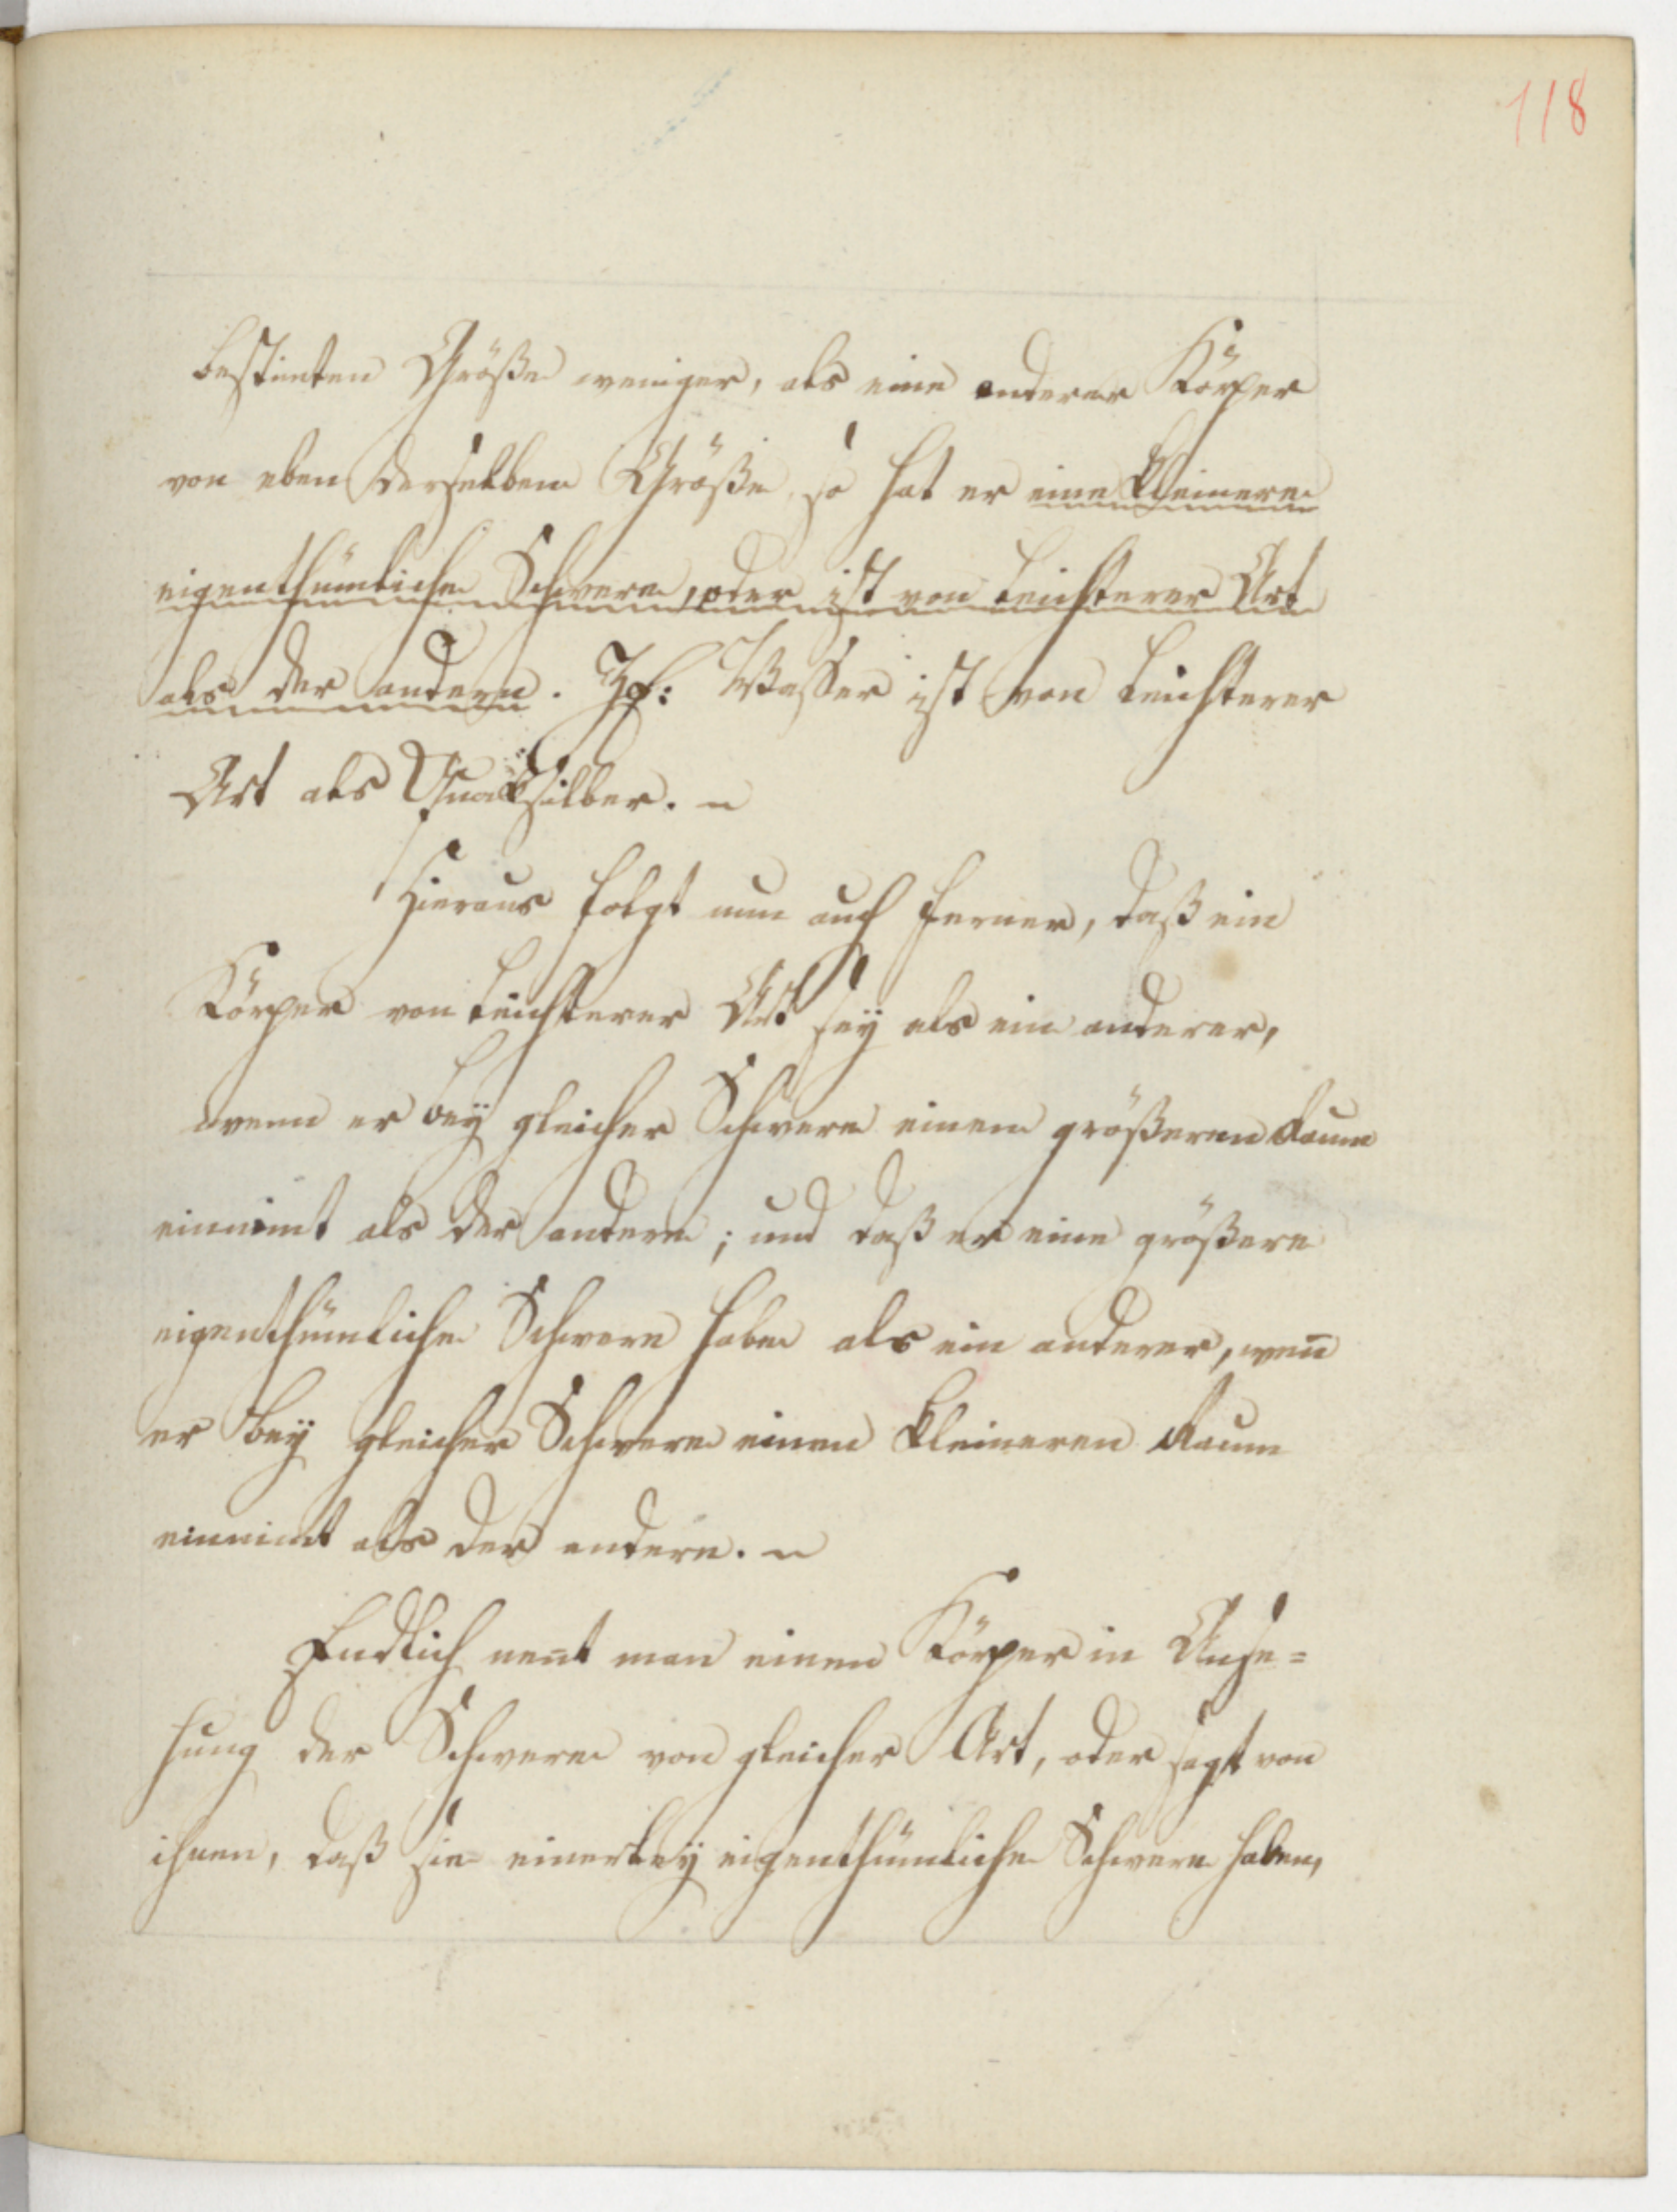 118
bestimten Größe weniger, als eine anderer Körper
von eben derselben Größe so hat er eine kleinere
eigenthümliche Schwere, oder ist von leichterer Art
als der andere. Zß: Wasser ist von leichterer
Art als Quecksilber. ~
Hieraus folgt nun auch ferner, daß ein
Körper von leichterer Art sey als ein anderer,
wenn er bey gleicher Schwere einen größeren Raum
einnimt als der andere; und daß er eine größere
eigenthümliche Schwere habe als ein anderer, wen̄
er bey gleicher Schwere einen kleineren Raum
einnimt als der andere. ~
Endlich nent man einen Körper in Anse=
hung der Schwere von gleicher Art, oder sagt von
ihnen, daß sie einerley eigenthümliche Schwere haben,